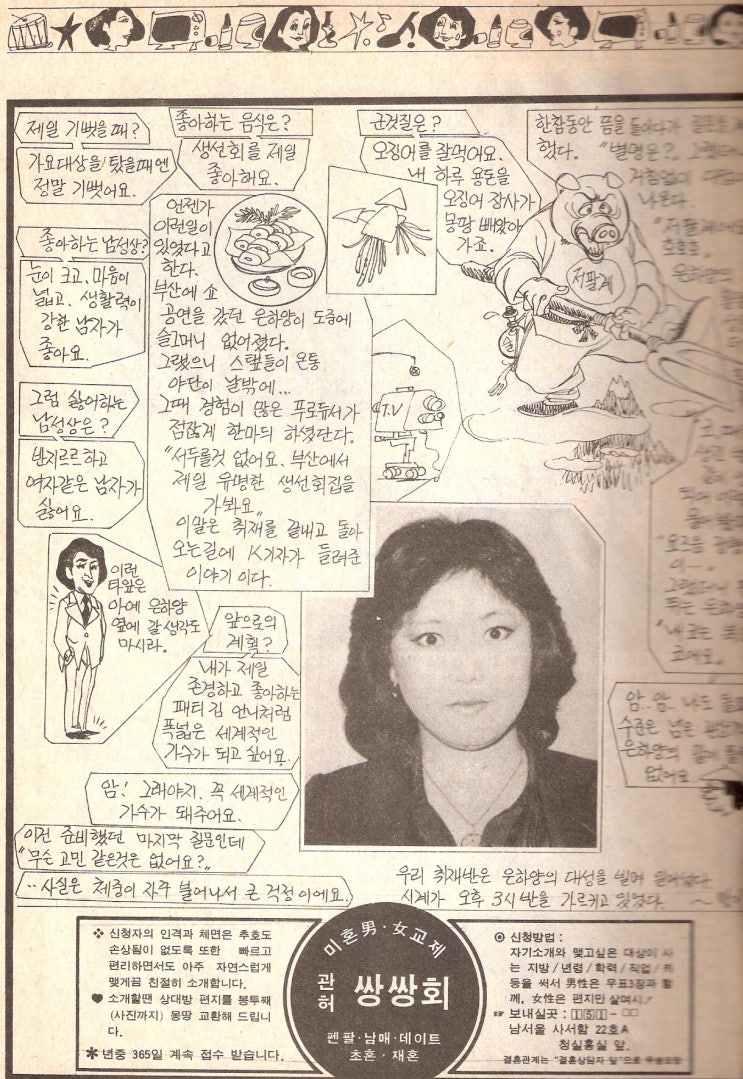 제일 기뻤을때?
가요대상을 탔을때엔
정말 기뻤어요.
좋아하는 음식은?
생선회를 제일
좋아해요.
언젠가
이런일이
있었다고
한다.
부산에 쇼
공연을 갔던 은하양이 도중에
슬그머니 없어졌다.
그랬으니 스탭들이 온통
야단이 날밖에...
그때 경험이 많은 푸로듀서가
점잖게 한마듸 하셨단다.
"서두를것 없어요. 부산에서
제일 유명한 생선회집을
가봐요"
이말은 취재를 끝내고 돌아
오는길에 K기자가 들려준
이야기 이다.
군것질은?
오징어를 잘먹어요.
내 하루 용돈을
오징어 장사가
몽땅 빼앗아
가죠.
한참동안 뜸을 들이다가
했다. "별명은?"
거침없이
나온다.
"저팔계
호호호.
은하양의
저팔계
술
T.V
좋아하는 남성상?
눈이 크고, 마음이
넓고, 생활력이
강한 남자가
좋아요.
그럼 싫어하는
남성상은?
반지르르하고
여자같은 남자가
싫어요.
이런
타잎은
아예 은하양
옆에 갈 생각도
마시라.
앞으로의
계획?
내가 제일
존경하고 좋아하는
패티김 언니처럼
폭넓은 세계적인
가수가 되고 싶어요.
암! 그래야지. 꼭 세계적인
가수가 돼주어요.
이건 준비했던 마지막 질문인데
"무슨 고민 같은것은 없어요?"
··사실은 체중이 자주 불어나서 큰 걱정이에요.
암.. 암.. 나도
수준은 넘은
은하양의
없어요
우리 취재반은 은하양의 대성을 빌며 일어났다.
시계가 오후 3시반을 가르키고 있었다.
❖ 신청자의 인격과 체면은 추호도
손상됨이 없도록 또한 빠르고
편리하면서도 아주 자연스럽게
맺게끔 친절히 소개합니다.
♥ 소개할땐 상대방 편지를 봉투째
(사진까지) 몽땅 교환해 드립니
다.
✱ 년중 365일 계속 접수 받습니다.
미혼男·女교제
관허
쌍쌍회
펜팔·남매·데이트
초혼·재혼
◉ 신청방법 :
자기소개와 맺고싶은 대상이 사
는 지방/년령/학력/직업/키
등을 써서 男性은 우표3장과 함
께, 女性은 편지만 살며시!
☞ 보내실곳 : 1 5 0 - □□
남서울 사서함 22호A
청실홍실 앞.
결혼관계는 "결혼상담자 앞"으로